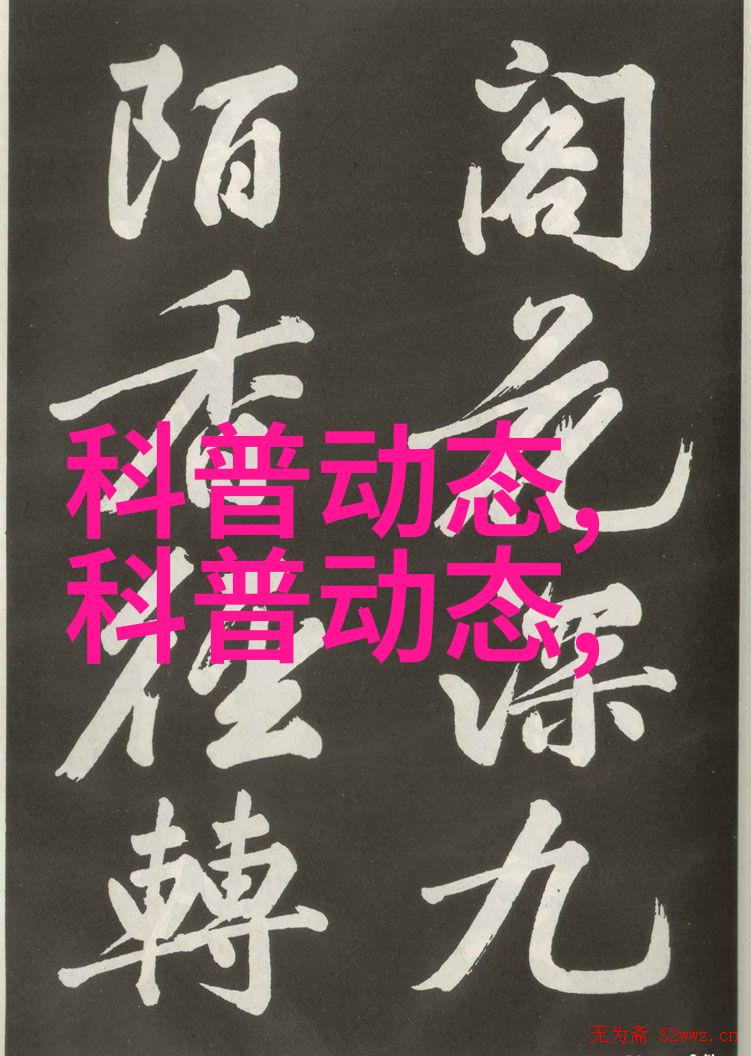 閣花深九
陌香徑轉
科普动态,
科普动态,
无为斋 52wwz.cn